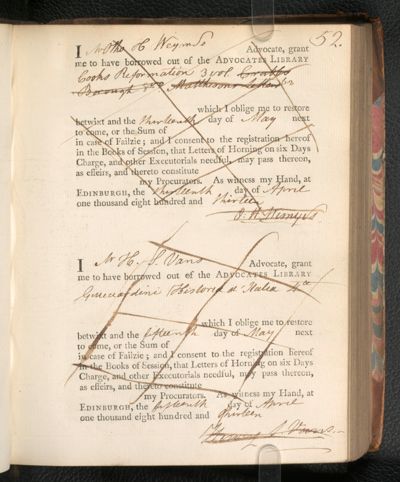 52.
I Mr H Wemyss Advocate, grant
me to have borrowed out of the ADVOCATES LIBRARY
Cooks Reformation 3 vol Crabbs
Borough Matthisons Letters
which I oblige me to restore
betwixt and the thirteenth day of May next
to come, or the Sum of
in case of Failzie; and I consent to the registration hereof
in the Books of Session, that Letters of Horning on six Days
Charge, and other Executorials needful, may pass thereon,
as effeirs, and thereto constitute
my Procurators. As witness my Hand, at
EDINBURGH, the thirteenth day of April
one thousand eight hundred and thirteen
H Wemyss
I Mr H. S. Vans Advocate, grant
me to have borrowed out of the ADVOCATES LIBRARY
Guicciardini Historia di Italia 4to
which I oblige me to restore
betwixt and the fifteenth day of May next
to come, or the Sum of
in case of Failzie; and I consent to the registration hereof
in the Books of Session, that Letters of Horning on six Days
Charge, and other Executorials needful, may pass thereon,
as effeirs, and thereto constitute
my Procurators. As witness my Hand, at
EDINBURGH, the fifteenth day of April
one thousand eight hundred and thirteen
S Vans